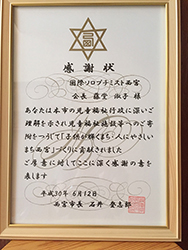 感謝状
国際ソロプチミスト西宮
会長 藤堂 淑子 様
あなたは本市の児童福祉行政に深いご
理解を示され児童福祉施設等へのご寄
附をつうじて「子供が輝くまち・人にやさしい
まち西宮」づくりに貢献されました
ご厚意に対してここに深く感謝の意を
表します
平成30年6月12日
西宮市長 石井 登志郎